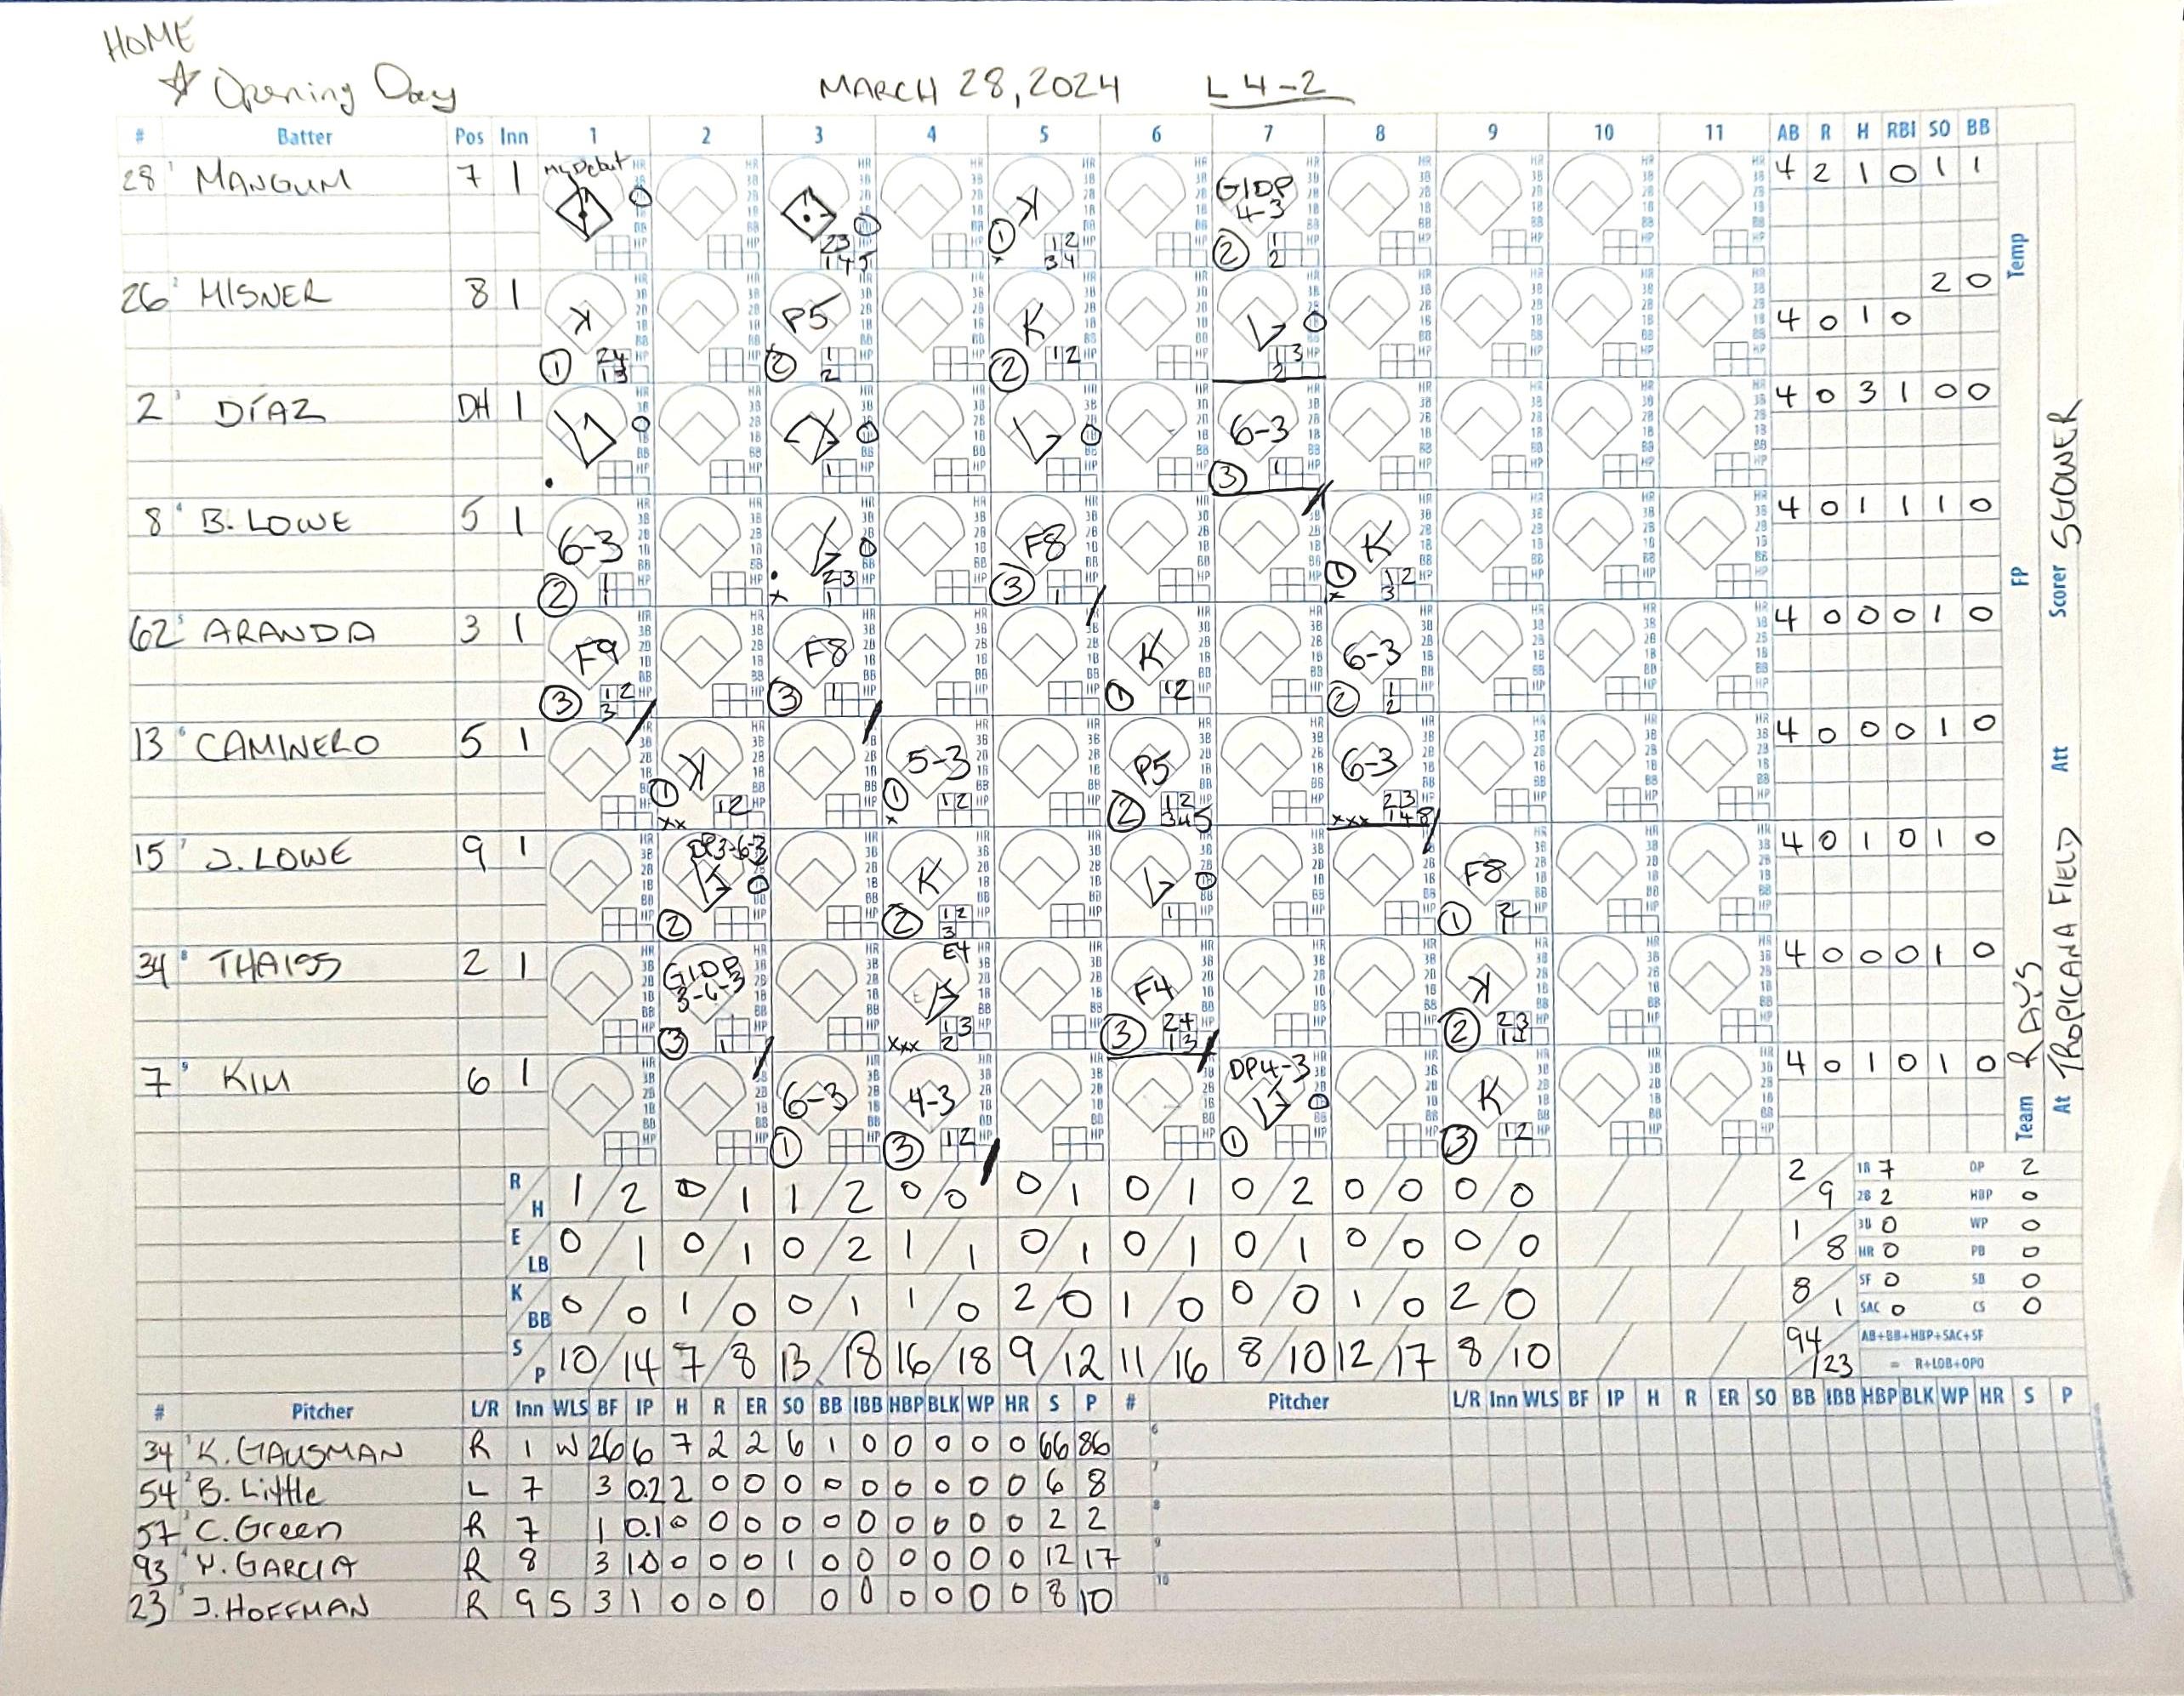 HOME
☆ Opening Day MARCH 28, 2024 L 4-2
# Batter Pos Inn 1 2 3 4 5 6 7 8 9 10 11 AB R H RBI SO BB
28 MANGUM 7 1 My Debut K GIDP 4-3 4 2 1 0 1 1
26 MISNER 8 1 K P5 K 4 0 1 0 2 0
2 DÍAZ DH 1 6-3 4 0 3 1 0 0
8 B. LOWE 5 1 6-3 F8 K 4 0 1 1 1 0
62 ARANDA 3 1 F9 F8 K 6-3 4 0 0 0 1 0
13 CAMINERO 5 1 K 5-3 P5 6-3 4 0 0 0 1 0
15 J. LOWE 9 1 DP3-6-3 K F8 4 0 1 0 1 0
34 THAISS 2 1 GIDP 3-6-3 E4 F4 K 4 0 0 0 1 0
7 KIM 6 1 6-3 4-3 DP4-3 K 4 0 1 0 1 0
R/H 1/2 0/1 1/2 0/0 0/1 0/1 0/2 0/0 0/0 2/9
E/LB 0/1 0/1 0/2 1/1 0/1 0/1 0/1 0/0 0/0 1/8
K/BB 0/0 1/0 0/1 1/0 2/0 1/0 0/0 1/0 2/0 8/1
S/P 10/14 7/8 13/18 16/18 9/12 11/16 8/10 12/17 8/10 94/123
1B 7 DP 2
2B 2 HBP 0
3B 0 WP 0
HR 0 PB 0
SF 0 SB 0
SAC 0 CS 0
AB+BB+HBP+SAC+SF
= R+LOB+OPO
Temp
FP Scorer SGOWER
Att
Team RAYS
At TROPICANA FIELD
# Pitcher L/R Inn WLS BF IP H R ER SO BB IBB HBP BLK WP HR S P # Pitcher L/R Inn WLS BF IP H R ER SO BB IBB HBP BLK WP HR S P
34 K. GAUSMAN R 1 W 26 6 7 2 2 6 1 0 0 0 0 0 66 86
54 B. Little L 7 3 0.2 2 0 0 0 0 0 0 0 0 0 6 8
57 C. Green R 7 1 0.1 0 0 0 0 0 0 0 0 0 0 2 2
93 Y. GARCIA R 8 3 1.0 0 0 0 1 0 0 0 0 0 0 12 17
23 J. HOFFMAN R 9 S 3 1 0 0 0 0 0 0 0 0 0 8 10